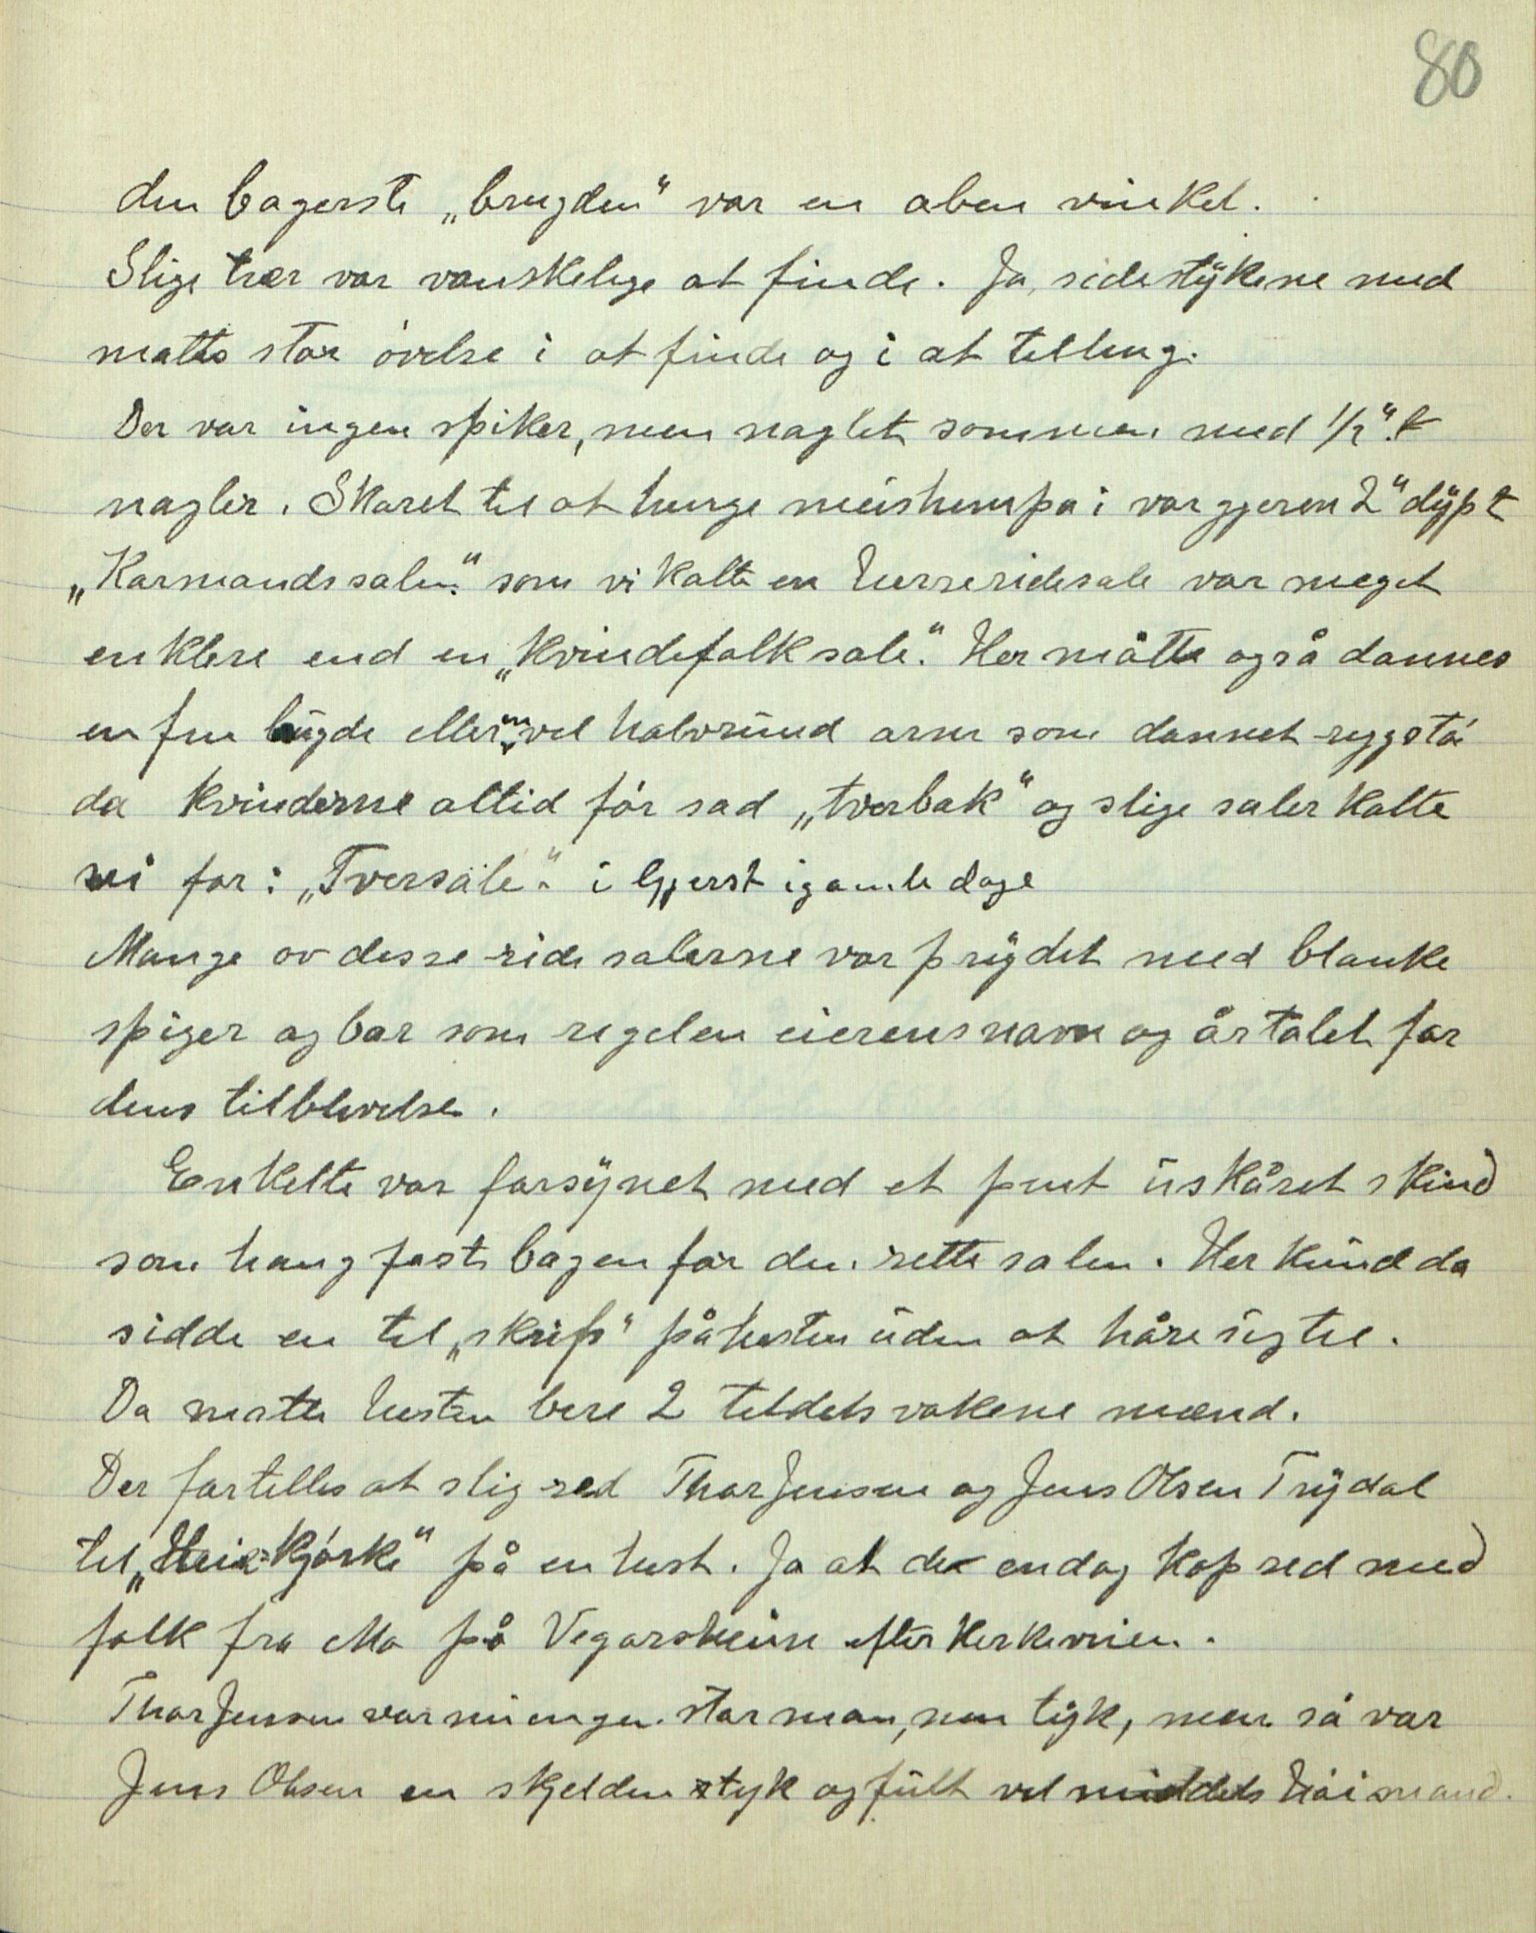 80
den bagerste „brugden“ var en aben vinkel.
Slige trær var vanskelige at finde. Ja, sidestykene med
matte stor øvelse i at finde og i at tillug.
Der var ingen spiker, men naglet sammen med 1/2"
nagler. Skaret til at henge meishempa i var gjeren 2" dypt
„Karmandssalen“ som vi kalte en herreridesale var meget
enklere end en „kvindefolksale“. Her måtte også dannes
en fin bugde eller en vel halvrund arm som dannet rygstø
da kvinderne altid før sad „tverbak“ og slige saler kalte
vi for: „Tversale“ i Gjerst i gamle dage
Mange av desse ridesalerne var prydet med blanke
spiger og bar som regelen eierens navn og årtalet for
dens tilblivelse.
Enkelte var forsynet med et pent uskåret skind
som hang faste bagenfor den rette salen. Her kund da
sidde en til „skrifs“ på hesten uden at håre sig til.
Da matte hesten bere 2 tildels voksne mænd.
Der fortelles at slig red Thor Jensen og Jens Olsen Trydal
til „Heiekjørke“ på en hest. Ja at de endog kap red med
folk fra Mo på Vegarsheien efter Herkeveien.
Thor Jensen var nu ingen stor man, men tyk, men så var
Jens Olsen en skjelden styk og fult vel middels høi mand.